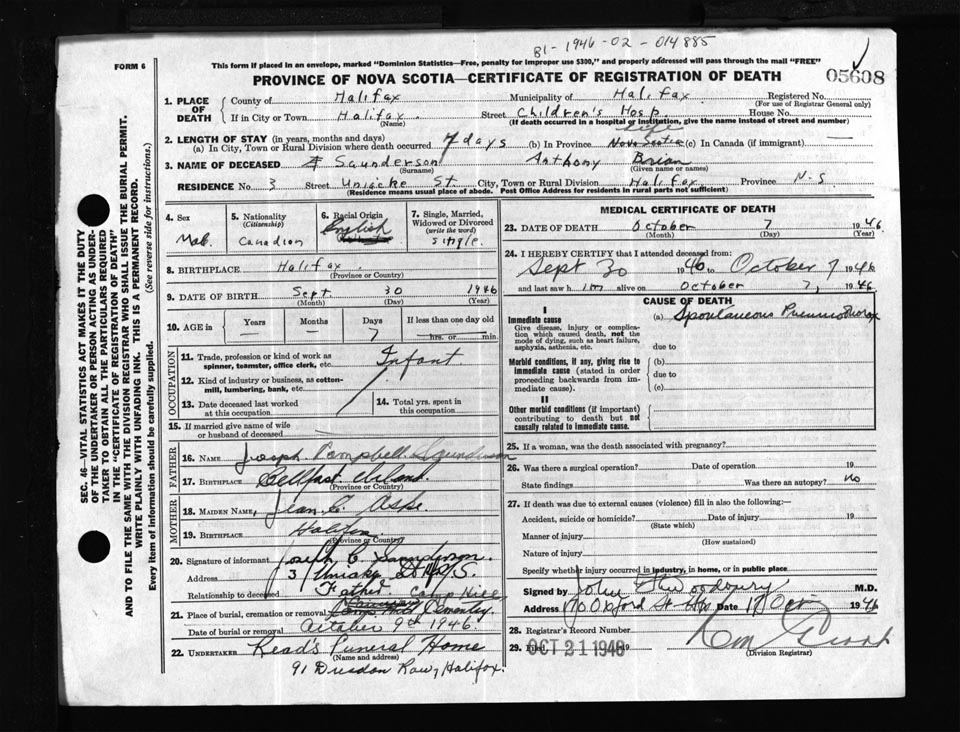 B1-1946-02-014885
FORM 6
This form if placed in an envelope, marked "Dominion Statistics—Free, penalty for improper use $300," and properly addressed will pass through the mail "FREE"
PROVINCE OF NOVA SCOTIA—CERTIFICATE OF REGISTRATION OF DEATH
05608
1. PLACE OF DEATH
County of Halifax Municipality of Halifax Registered No.
(For use of Registrar General only)
If in City or Town Halifax Street Children's Hosp. House No.
(Name) (If death occurred in a hospital or institution, give the name instead of street and number)
2. LENGTH OF STAY (in years, months and days)
(a) In City, Town or Rural Division where death occurred 7 days (b) In Province Nova Scotia life (c) In Canada (if immigrant)
3. NAME OF DECEASED Saunderson Anthony Brian
(Surname) (Given name or names)
RESIDENCE No. 3 Street Uniacke St. City, Town or Rural Division Halifax Province N.S
(Residence means usual place of abode. Post Office Address for residents in rural parts not sufficient)
4. Sex
Male
5. Nationality (Citizenship)
Canadian
6. Racial Origin
English
7. Single, Married, Widowed or Divorced (write the word)
Single
8. BIRTHPLACE Halifax
(Province or Country)
9. DATE OF BIRTH Sept. 30 1946
(Month) (Day) (Year)
10. AGE in Years Months Days If less than one day old
— 7 hrs. or min.
OCCUPATION
11. Trade, profession or kind of work as spinner, teamster, office clerk, etc. Infant
12. Kind of industry or business, as cotton-mill, lumbering, bank, etc.
13. Date deceased last worked at this occupation
14. Total yrs. spent in this occupation
15. If married give name of wife or husband of deceased
FATHER
16. NAME Joseph Campbell Saunderson
17. BIRTHPLACE Bellfast Ireland.
(Province or Country)
MOTHER
18. MAIDEN NAME Jean C.
19. BIRTHPLACE Halifax
(Province or Country)
20. Signature of informant Joseph C. Saunderson.
Address 3 Uniacke St N.S.
Relationship to deceased Father.
21. Place of burial, cremation or removal Camp Hill Cemetery
Date of burial or removal October 9th 1946.
22. UNDERTAKER Read's Funeral Home
(Name and address)
91 Dresden Row, Halifax.
MEDICAL CERTIFICATE OF DEATH
23. DATE OF DEATH October 7 1946
(Month) (Day) (Year)
24. I HEREBY CERTIFY that I attended deceased from
Sept 30 1946 to October 7 1946
and last saw him alive on October 7, 1946
CAUSE OF DEATH
I
Immediate cause
Give disease, injury or complication which caused death, not the mode of dying, such as heart failure, asphyxia, asthenia, etc.
(a) Spontaneous Pneumothorax
due to
Morbid conditions, if any, giving rise to immediate cause (stated in order proceeding backwards from immediate cause).
(b)
due to
(c)
II
Other morbid conditions (if important) contributing to death but not causally related to immediate cause.
25. If a woman, was the death associated with pregnancy?
26. Was there a surgical operation? Date of operation 19
State findings Was there an autopsy? no
27. If death was due to external causes (violence) fill in also the following:—
Accident, suicide or homicide? Date of injury 19
(State which)
Manner of injury
(How sustained)
Nature of injury
Specify whether injury occurred in industry, in home, or in public place
Signed by John Woodbury M.D.
Address Oxford St Date Oct 1946
28. Registrar's Record Number
29. Filed OCT 21 1946 19
(Division Registrar)
SEC. 46—VITAL STATISTICS ACT MAKES IT THE DUTY
OF THE UNDERTAKER OR PERSON ACTING AS UNDERTAKER TO OBTAIN ALL THE PARTICULARS REQUIRED
IN THE "CERTIFICATE OF REGISTRATION OF DEATH"
AND TO FILE THE SAME WITH THE DIVISION REGISTRAR WHO SHALL ISSUE THE BURIAL PERMIT.
WRITE PLAINLY WITH UNFADING INK. THIS IS A PERMANENT RECORD.
Every item of information should be carefully supplied. (See reverse side for instructions.)